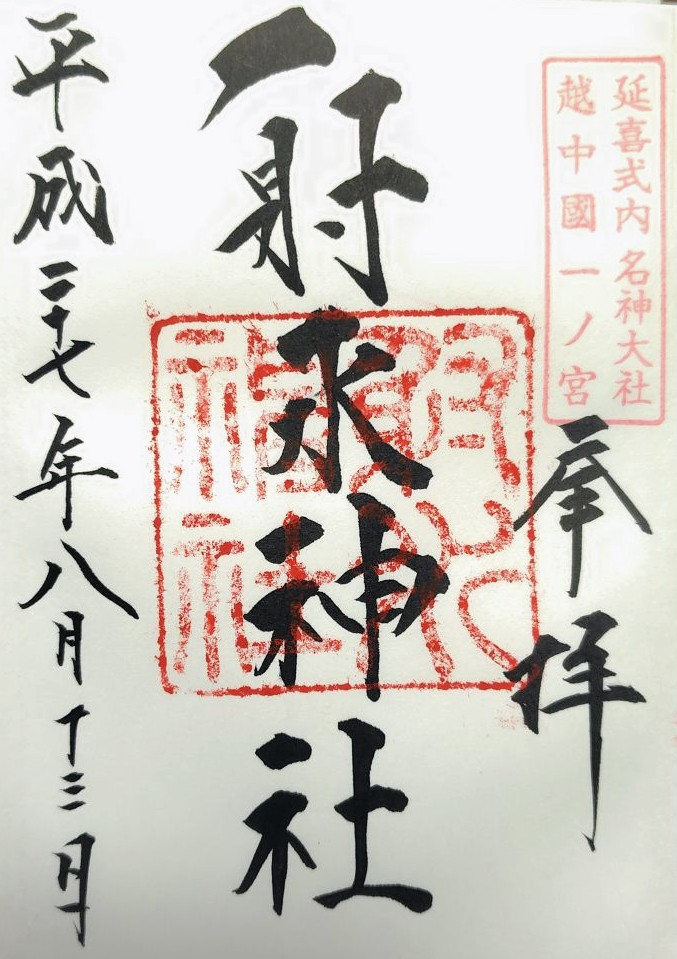 延喜式内名神大社
越中國一ノ宮
奉拝
射水神社
平成二十七年八月十三日